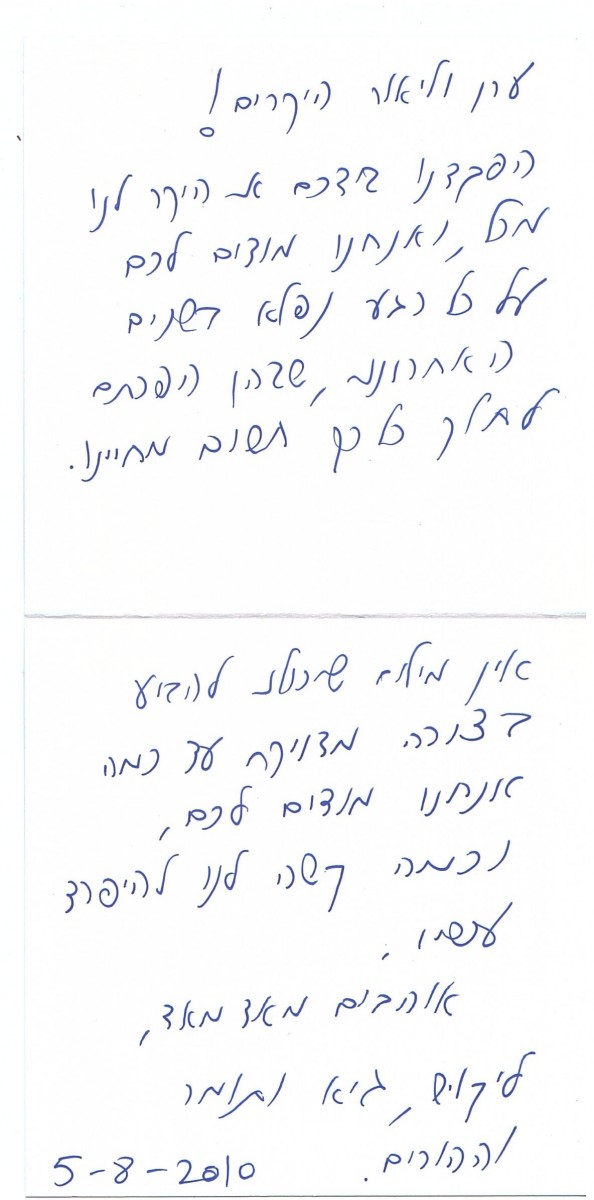 ערן וליאור היקרים!
הפקדנו בידכם את היקר לנו
מכל, ואנחנו מודים לכם
על כל רגע נפלא בשנים
האחרונות, שבהן הפכתם
לחלק כל כך חשוב מחיינו.
אין מילים שיכולות להביע
בצורה מדויקת עד כמה
אנחנו מודים לכם,
וכמה קשה לנו להיפרד
עכשיו.
אוהבים מאד מאד,
גיא ותומר
וההורים.
5-8-2010